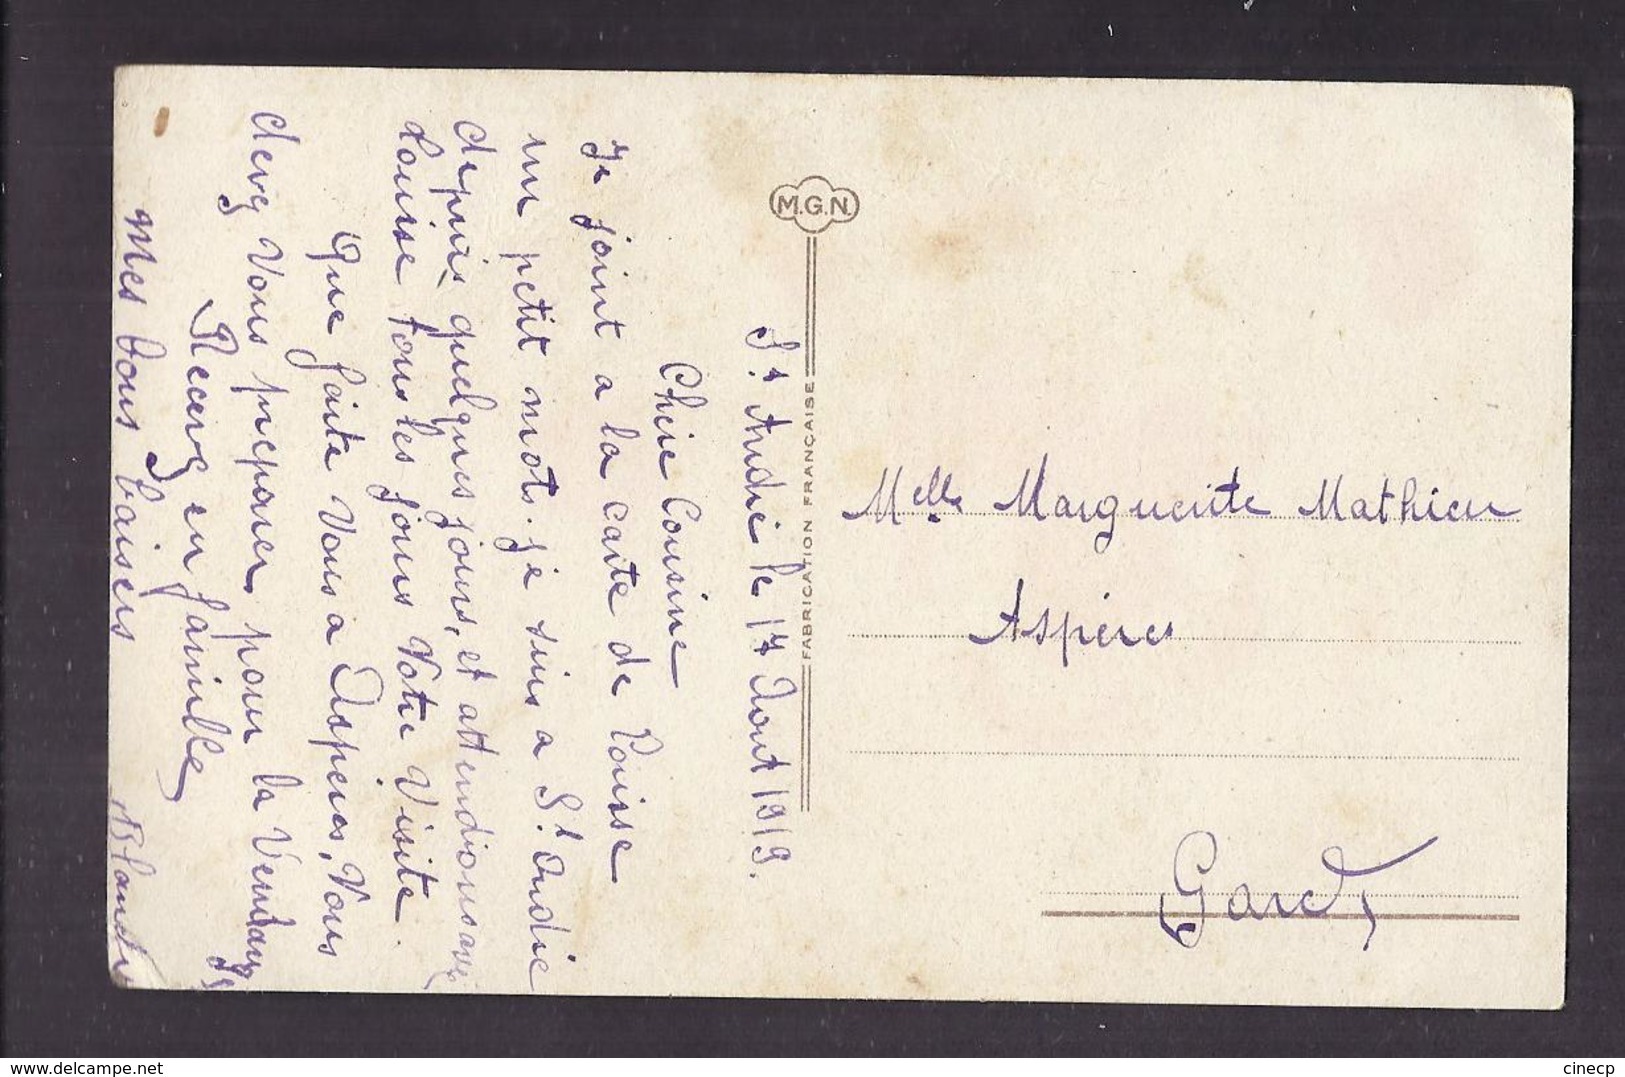 St André le 17 Aout 1919.
Chère Cousine
Je joint a la carte de Loüise
un petit mot. je suis a St. André
depuis quelques jours, et attendions avec
Louise tous les jours Votre Visite.
Que faite Vous a Aspères, Vous
devez Vous preparer pour la Vendange
Recevez en famille
Mes bons baisers
M.G.N.
FABRICATION FRANÇAISE
Melle Marguerite Mathieu
Aspères
Gard
www.delcampe.net
cinecp